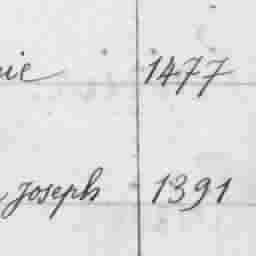 1477
Joseph 1391